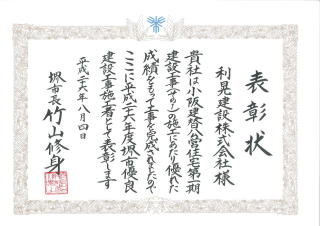 表彰状
利晃建設株式会社様
貴社は小阪建替公営住宅第一期
建設工事(その1)の施工にあたり優れた
成績をもって工事を完成されたので
ここに平成二十六年度堺市優良
建設工事施工者として表彰します
平成二十六年八月四日
堺市長 竹山修身